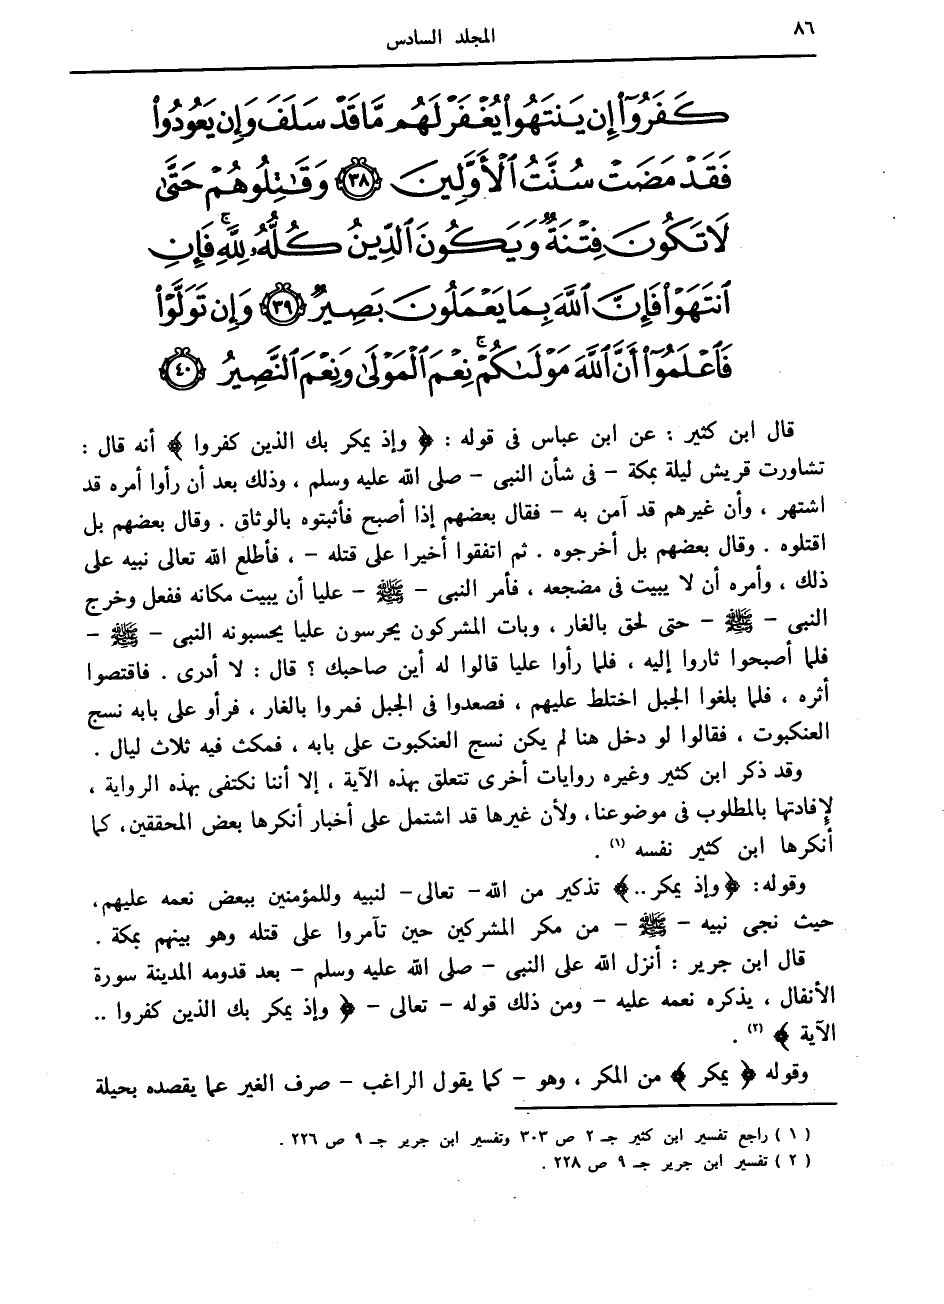 ٨٦
المجلد السادس
كَفَرُوٓا۟ إِن يَنتَهُوا۟ يُغْفَرْ لَهُم مَّا قَدْ سَلَفَ وَإِن يَعُودُوا۟
فَقَدْ مَضَتْ سُنَّتُ ٱلْأَوَّلِينَ ﴿٣٨﴾ وَقَٰتِلُوهُمْ حَتَّىٰ
لَا تَكُونَ فِتْنَةٌ وَيَكُونَ ٱلدِّينُ كُلُّهُۥ لِلَّهِ ۚ فَإِنِ
ٱنتَهَوْا۟ فَإِنَّ ٱللَّهَ بِمَا يَعْمَلُونَ بَصِيرٌ ﴿٣٩﴾ وَإِن تَوَلَّوْا۟
فَٱعْلَمُوٓا۟ أَنَّ ٱللَّهَ مَوْلَىٰكُمْ ۚ نِعْمَ ٱلْمَوْلَىٰ وَنِعْمَ ٱلنَّصِيرُ ﴿٤٠﴾
قال ابن كثير : عن ابن عباس فى قوله : ﴿ وإذ يمكر بك الذين كفروا ﴾ أنه قال :
تشاورت قريش ليلة بمكة – فى شأن النبى – صلى الله عليه وسلم ، وذلك بعد أن رأوا أمره قد
اشتهر ، وأن غيرهم قد آمن به – فقال بعضهم إذا أصبح فأثبتوه بالوثاق . وقال بعضهم بل
اقتلوه . وقال بعضهم بل أخرجوه . ثم اتفقوا أخيرا على قتله – ، فأطلع الله تعالى نبيه على
ذلك ، وأمره أن لا يبيت فى مضجعه ، فأمر النبى – ﷺ – عليا أن يبيت مكانه ففعل وخرج
النبى – ﷺ – حتى لحق بالغار ، وبات المشركون يحرسون عليا يحسبونه النبى – ﷺ –
فلما أصبحوا ثاروا إليه ، فلما رأوا عليا قالوا له أين صاحبك ؟ قال : لا أدرى . فاقتصوا
أثره ، فلما بلغوا الجبل اختلط عليهم ، فصعدوا فى الجبل فمروا بالغار ، فرأو على بابه نسج
العنكبوت ، فقالوا لو دخل هنا لم يكن نسج العنكبوت على بابه ، فمكث فيه ثلاث ليال .
وقد ذكر ابن كثير وغيره روايات أخرى تتعلق بهذه الآية ، إلا أننا نكتفى بهذه الرواية ،
لإفادتها بالمطلوب فى موضوعنا، ولأن غيرها قد اشتمل على أخبار أنكرها بعض المحققين، كما
أنكرها ابن كثير نفسه (١) .
وقوله: ﴿وإذ يمكر..﴾ تذكير من الله– تعالى– لنبيه وللمؤمنين ببعض نعمه عليهم،
حيث نجى نبيه – ﷺ – من مكر المشركين حين تآمروا على قتله وهو بينهم بمكة .
قال ابن جرير : أنزل الله على النبى – صلى الله عليه وسلم – بعد قدومه المدينة سورة
الأنفال ، يذكره نعمه عليه – ومن ذلك قوله – تعالى – ﴿ وإذ يمكر بك الذين كفروا ..
الآية ﴾ (٢) .
وقوله ﴿ يمكر ﴾ من المكر ، وهو – كما يقول الراغب – صرف الغير عما يقصده بحيلة
( ١ ) راجع تفسير ابن كثير جـ ٢ ص ٣٠٣ وتفسير ابن جرير جـ ٩ ص ٢٢٦ .
( ٢ ) تفسير ابن جرير جـ ٩ ص ٢٢٨ .